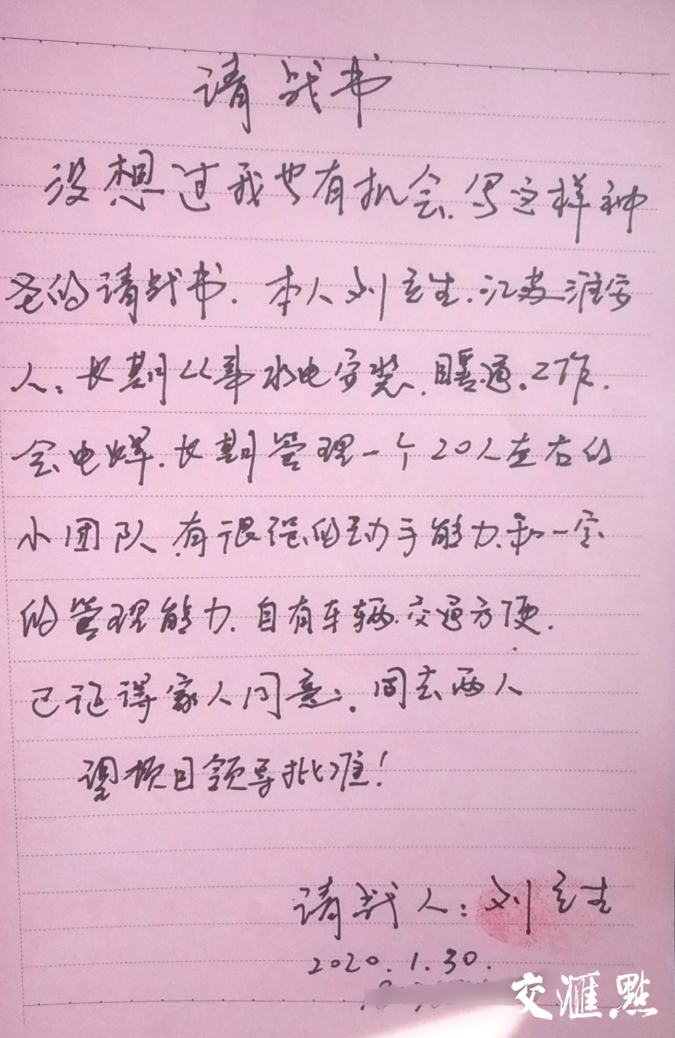 请战书
没想过我也有机会、写这样神
圣的请战书. 本人刘立生. 江苏淮安
人. 长期从事水电安装、暖通. 工作.
会电焊. 长期管理一个20人左右的
小团队 有很强的动手能力和一定
的管理能力. 自有车辆. 交通方便.
已证得家人同意. 同去两人
望项目领导批准!
请战人: 刘立生
2020.1.30.
交滙點